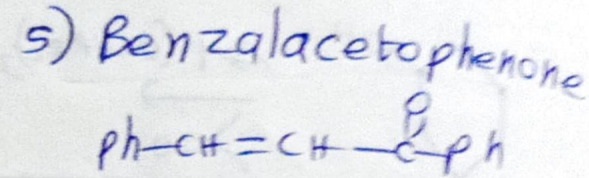 5) Benzalacetophenone
O
ph-CH=CH-C-ph